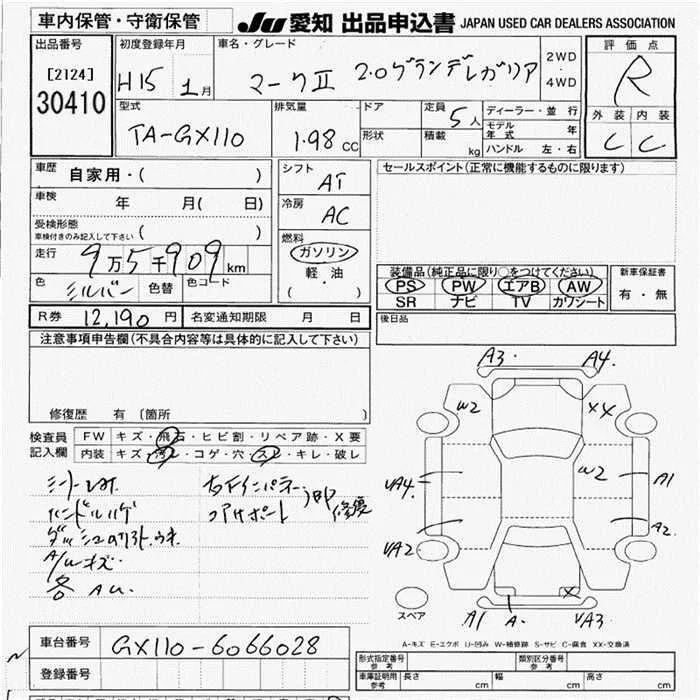 車内保管・守衛保管
JU 愛知 出品申込書 JAPAN USED CAR DEALERS ASSOCIATION
出品番号
[2124]
30410
初度登録年月
H15 1月
車名・グレード
マークⅡ 2.0グランデレガリア
2WD
4WD
評価点
R
外装 内装
C C
型式
TA-GX110
排気量
1.98 CC
ドア
形状
定員
5人
積載
kg
ディーラー・並行
モデル年式 年
ハンドル 左・右
車歴
自家用・( )
車検
年 月( 日)
受検形態
車検付きのみ記入して下さい ( )
走行
9万5千909km
色
シルバー
色替
色コード
シフト
AT
冷房
AC
燃料
ガソリン
軽・油
( ・ )
セールスポイント(正常に機能するものに限ります)
装備品(純正品に限り○をつけてください)
PS PW エアB AW
SR ナビ TV カワシート
新車保証書
有・無
後日品
R券 12,190円
名変通知期限 月 日
注意事項申告欄(不具合内容等は具体的に記入して下さい)
修復歴 有 〔箇所 〕
検査員
記入欄
FW キズ・飛石・ヒビ割・リペア跡・X要
内装 キズ・汚レ・コゲ・穴・スレ・キレ・破レ
ハンドルハゲ
コアサポート
修復
A/Wキズ・
各 AU.
A3・ A4・
W2 XX
W2
UA4・ A1
UA2 A2
A1 A・ X UA3・
スペア
A-キズ E-エクボ U-凹み W-補修跡 S-サビ C-腐食 XX-交換済
車台番号
GX110-6066028
登録番号
形式指定番号
参考
類別区分番号
参考
車庫証明用
参考
長さ cm
幅 cm
高さ cm